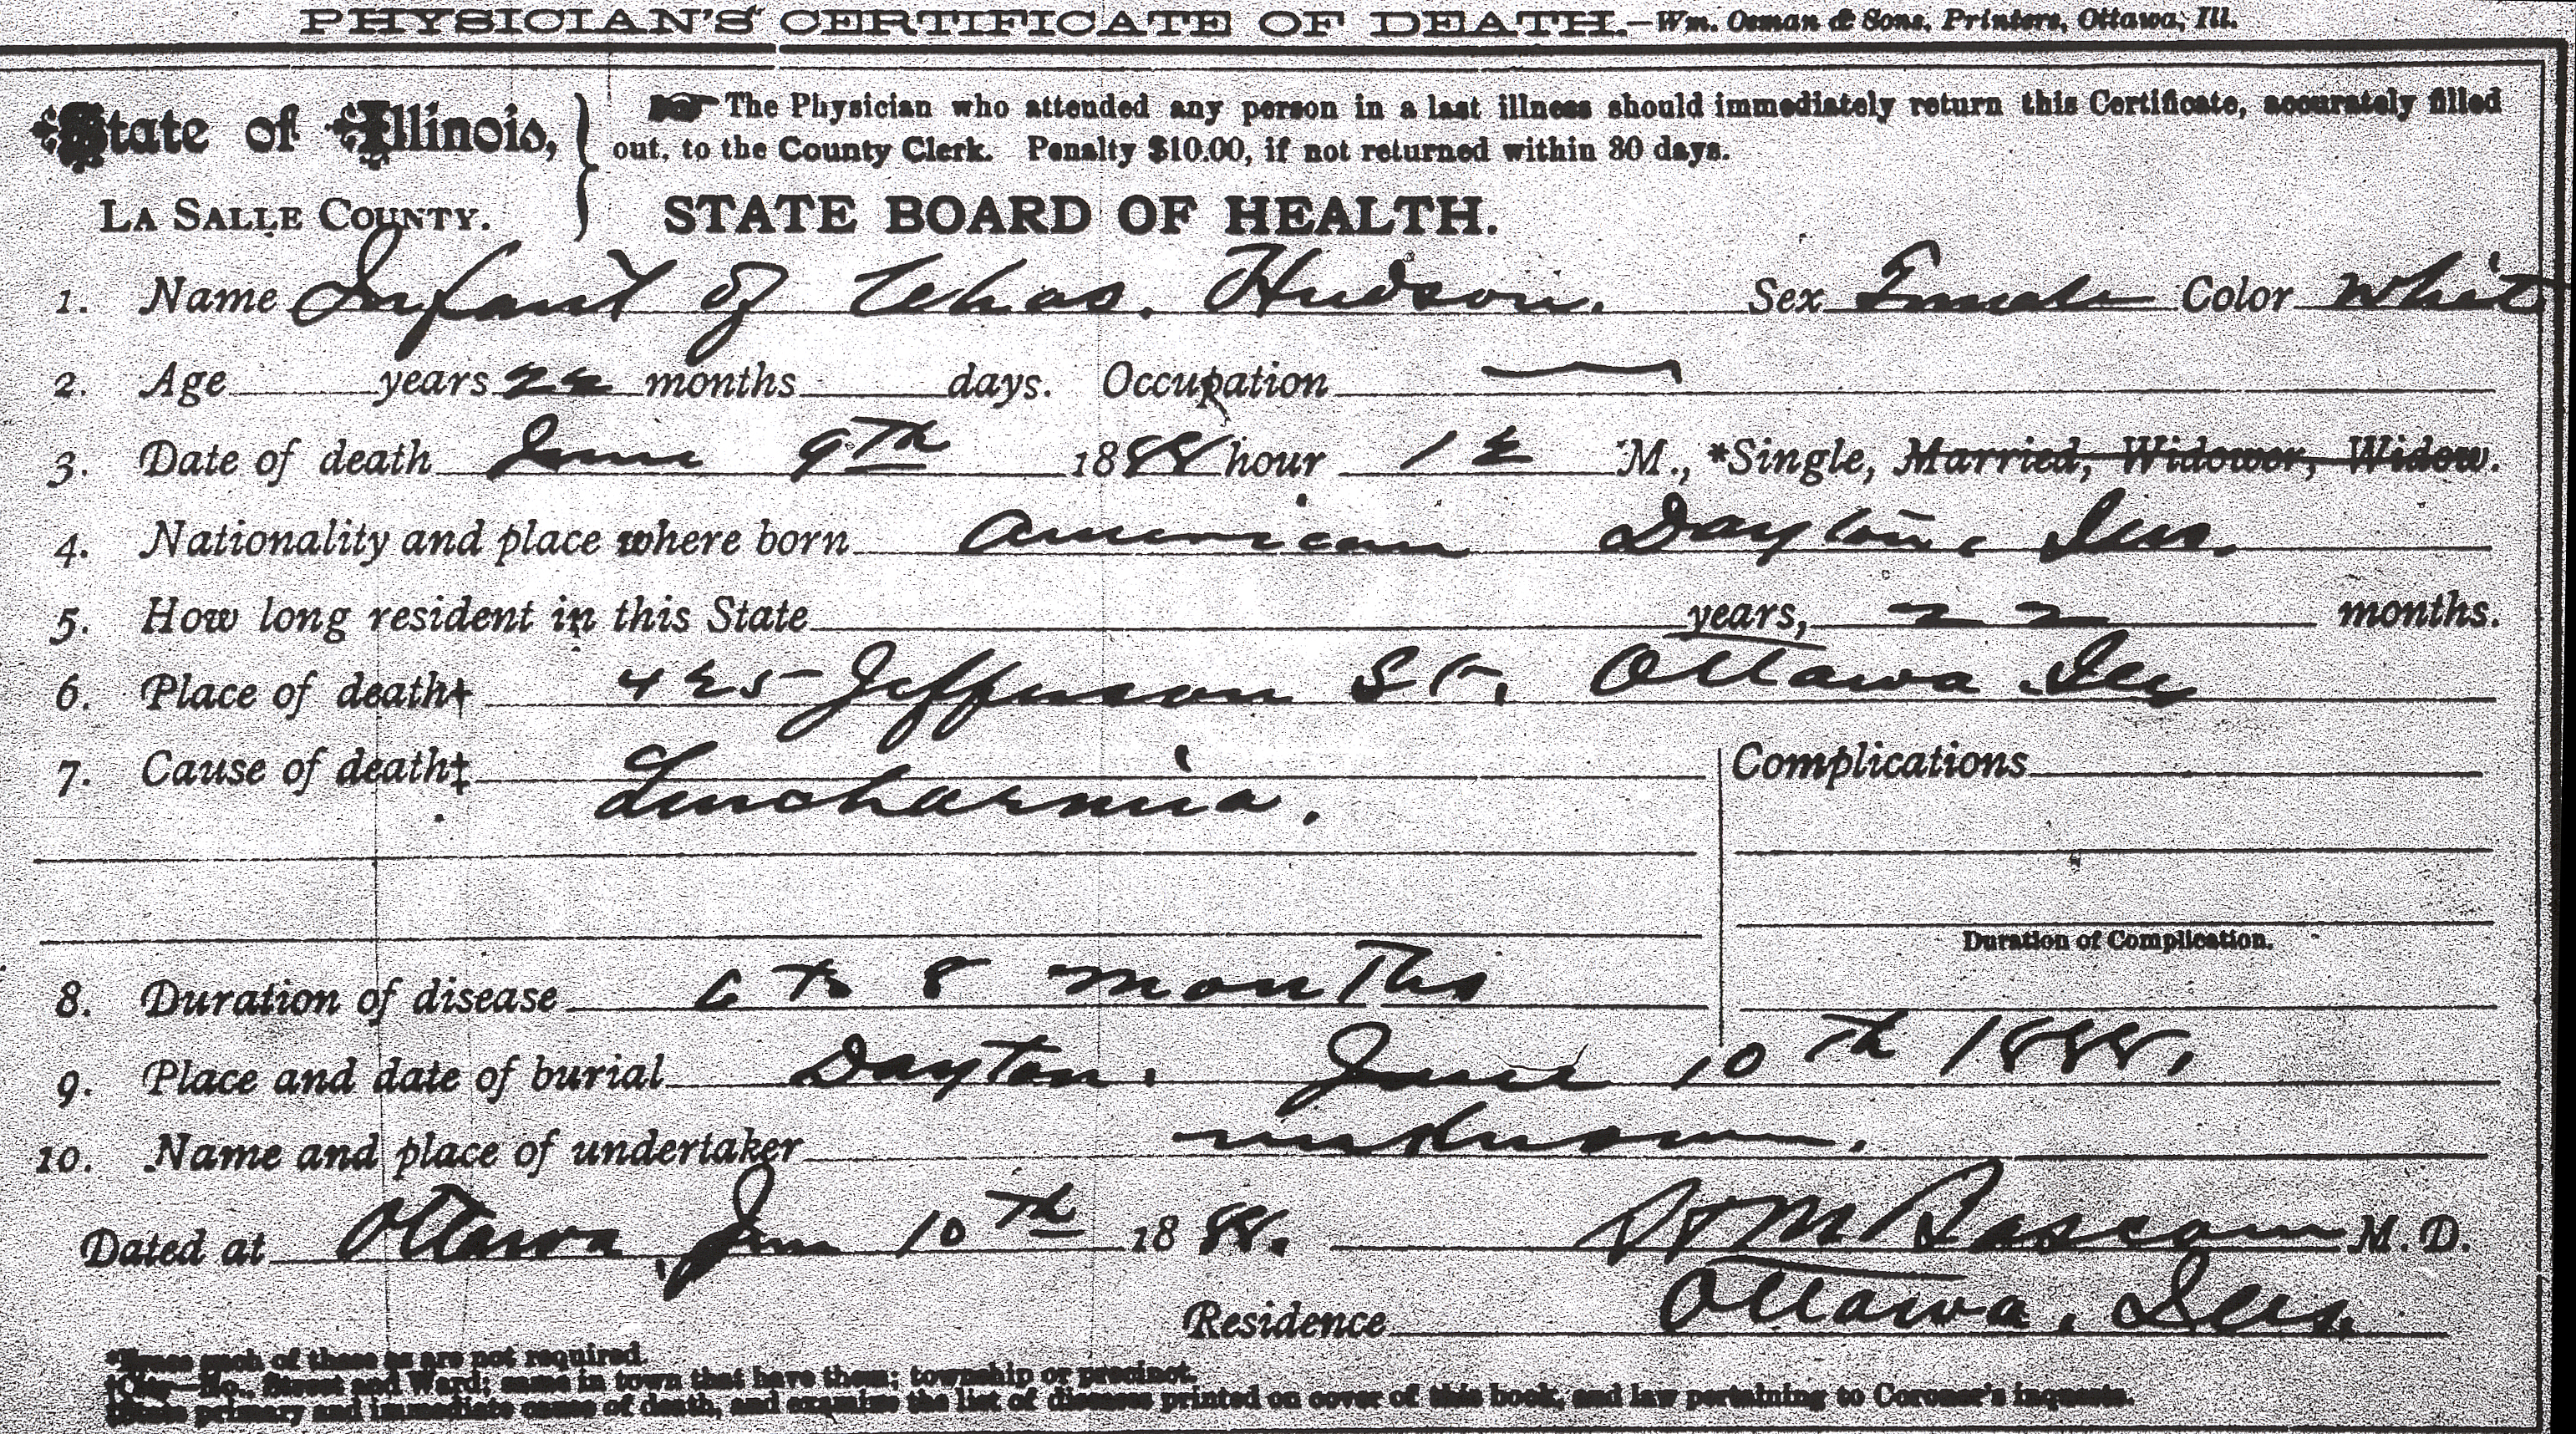 PHYSICIAN'S CERTIFICATE OF DEATH.—Wm. Osman & Sons, Printers, Ottawa, Ill.
State of Illinois,
LA SALLE COUNTY.
The Physician who attended any person in a last illness should immediately return this Certificate, accurately filled
out, to the County Clerk. Penalty $10.00, if not returned within 30 days.
STATE BOARD OF HEALTH.
1. Name Infant of Chas. Hudson. Sex Female Color White
2. Age years 22 months days. Occupation
3. Date of death June 9th 1888 hour 12 M., *Single, Married, Widower, Widow.
4. Nationality and place where born American Dayton, Ills.
5. How long resident in this State years, 22 months.
6. Place of death† 425 Jefferson St. Ottawa Ill
7. Cause of death‡ Complications
8. Duration of disease 6 to 8 months
Duration of Complication.
9. Place and date of burial Dayton. June 10th 1888.
10. Name and place of undertaker unknown.
Dated at Ottawa, June 10th 1888. Bascom M. D.
Residence Ottawa, Ills.
*Erase such of these as are not required.
†City—No., Street and Ward; same in town that have them; township or precinct.
‡State primary and immediate cause of death, and examine the list of diseases printed on cover of this book, and law pertaining to Coroner's inquests.